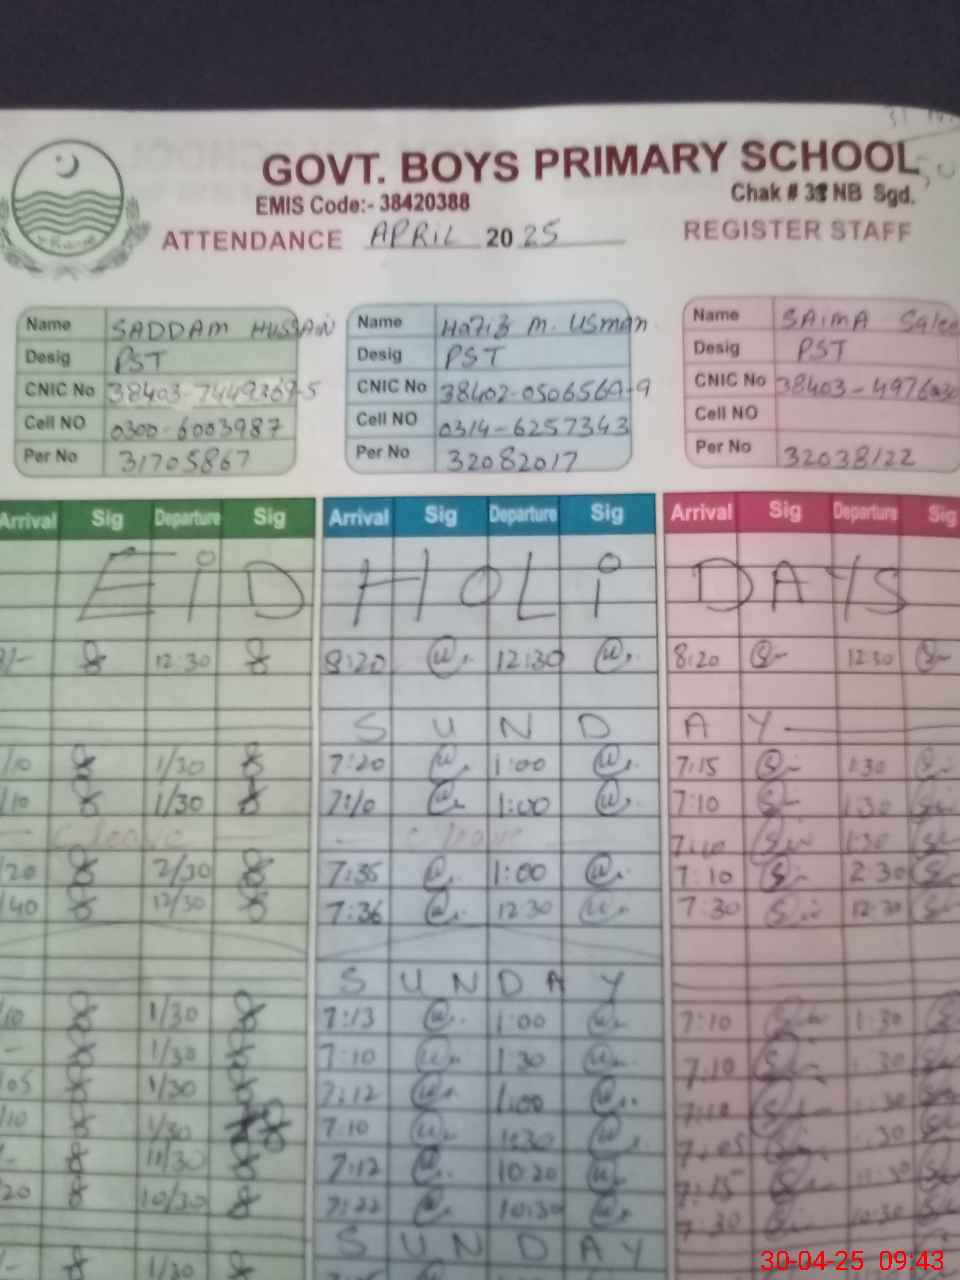 GOVT. BOYS PRIMARY SCHOOL
EMIS Code:- 38420388 Chak # 38 NB Sgd.
ATTENDANCE APRIL 2025 REGISTER STAFF
Name SADDAM HUSSAIN Name Hafiz M. Usman Name SAIMA
Desig PST Desig PST Desig PST
CNIC No 38403-7449369-5 CNIC No 38402-0506569-9 CNIC No 38403-4976
Cell NO 0300-6003987 Cell NO 0314-6257343 Cell NO
Per No 31705867 Per No 32082017 Per No 32038122
Arrival Sig Departure Sig Arrival Sig Departure Sig Arrival Sig Departure Sig
EiD HOLi DAYS
12:30 8:20 12:30 8:20 12:30
SUNDAY
/10 1/30 7:20 1:00 7:15 1:30
/10 1/30 7:10 1:00 7:10 1:30
leave leave 7:10 1:30
/20 2/30 7:35 1:00 7:10 2:30
/40 12/30 7:36 12:30 7:30 12:30
SUNDAY
/10 1/30 7:13 1:00 7:10 1:30
1/30 7:10 1:30 7:10 1:30
/05 1/30 7:12 1:00 7:10 1:30
/10 1/30 7:10 1:30 7:05 1:30
11/30 7:12 10:20 7:15 11:30
/20 10/30 7:22 10:30 7:30 10:30
SUNDAY
1/30
30-04-25 09:43